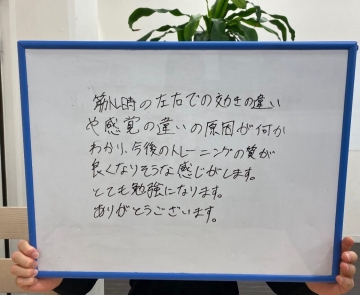 筋トレ時の左右での効きの違い
や感覚の違いの原因が何か
わかり、今後のトレーニングの質が
良くなりそうな感じがします。
とても勉強になります。
ありがとうございます。